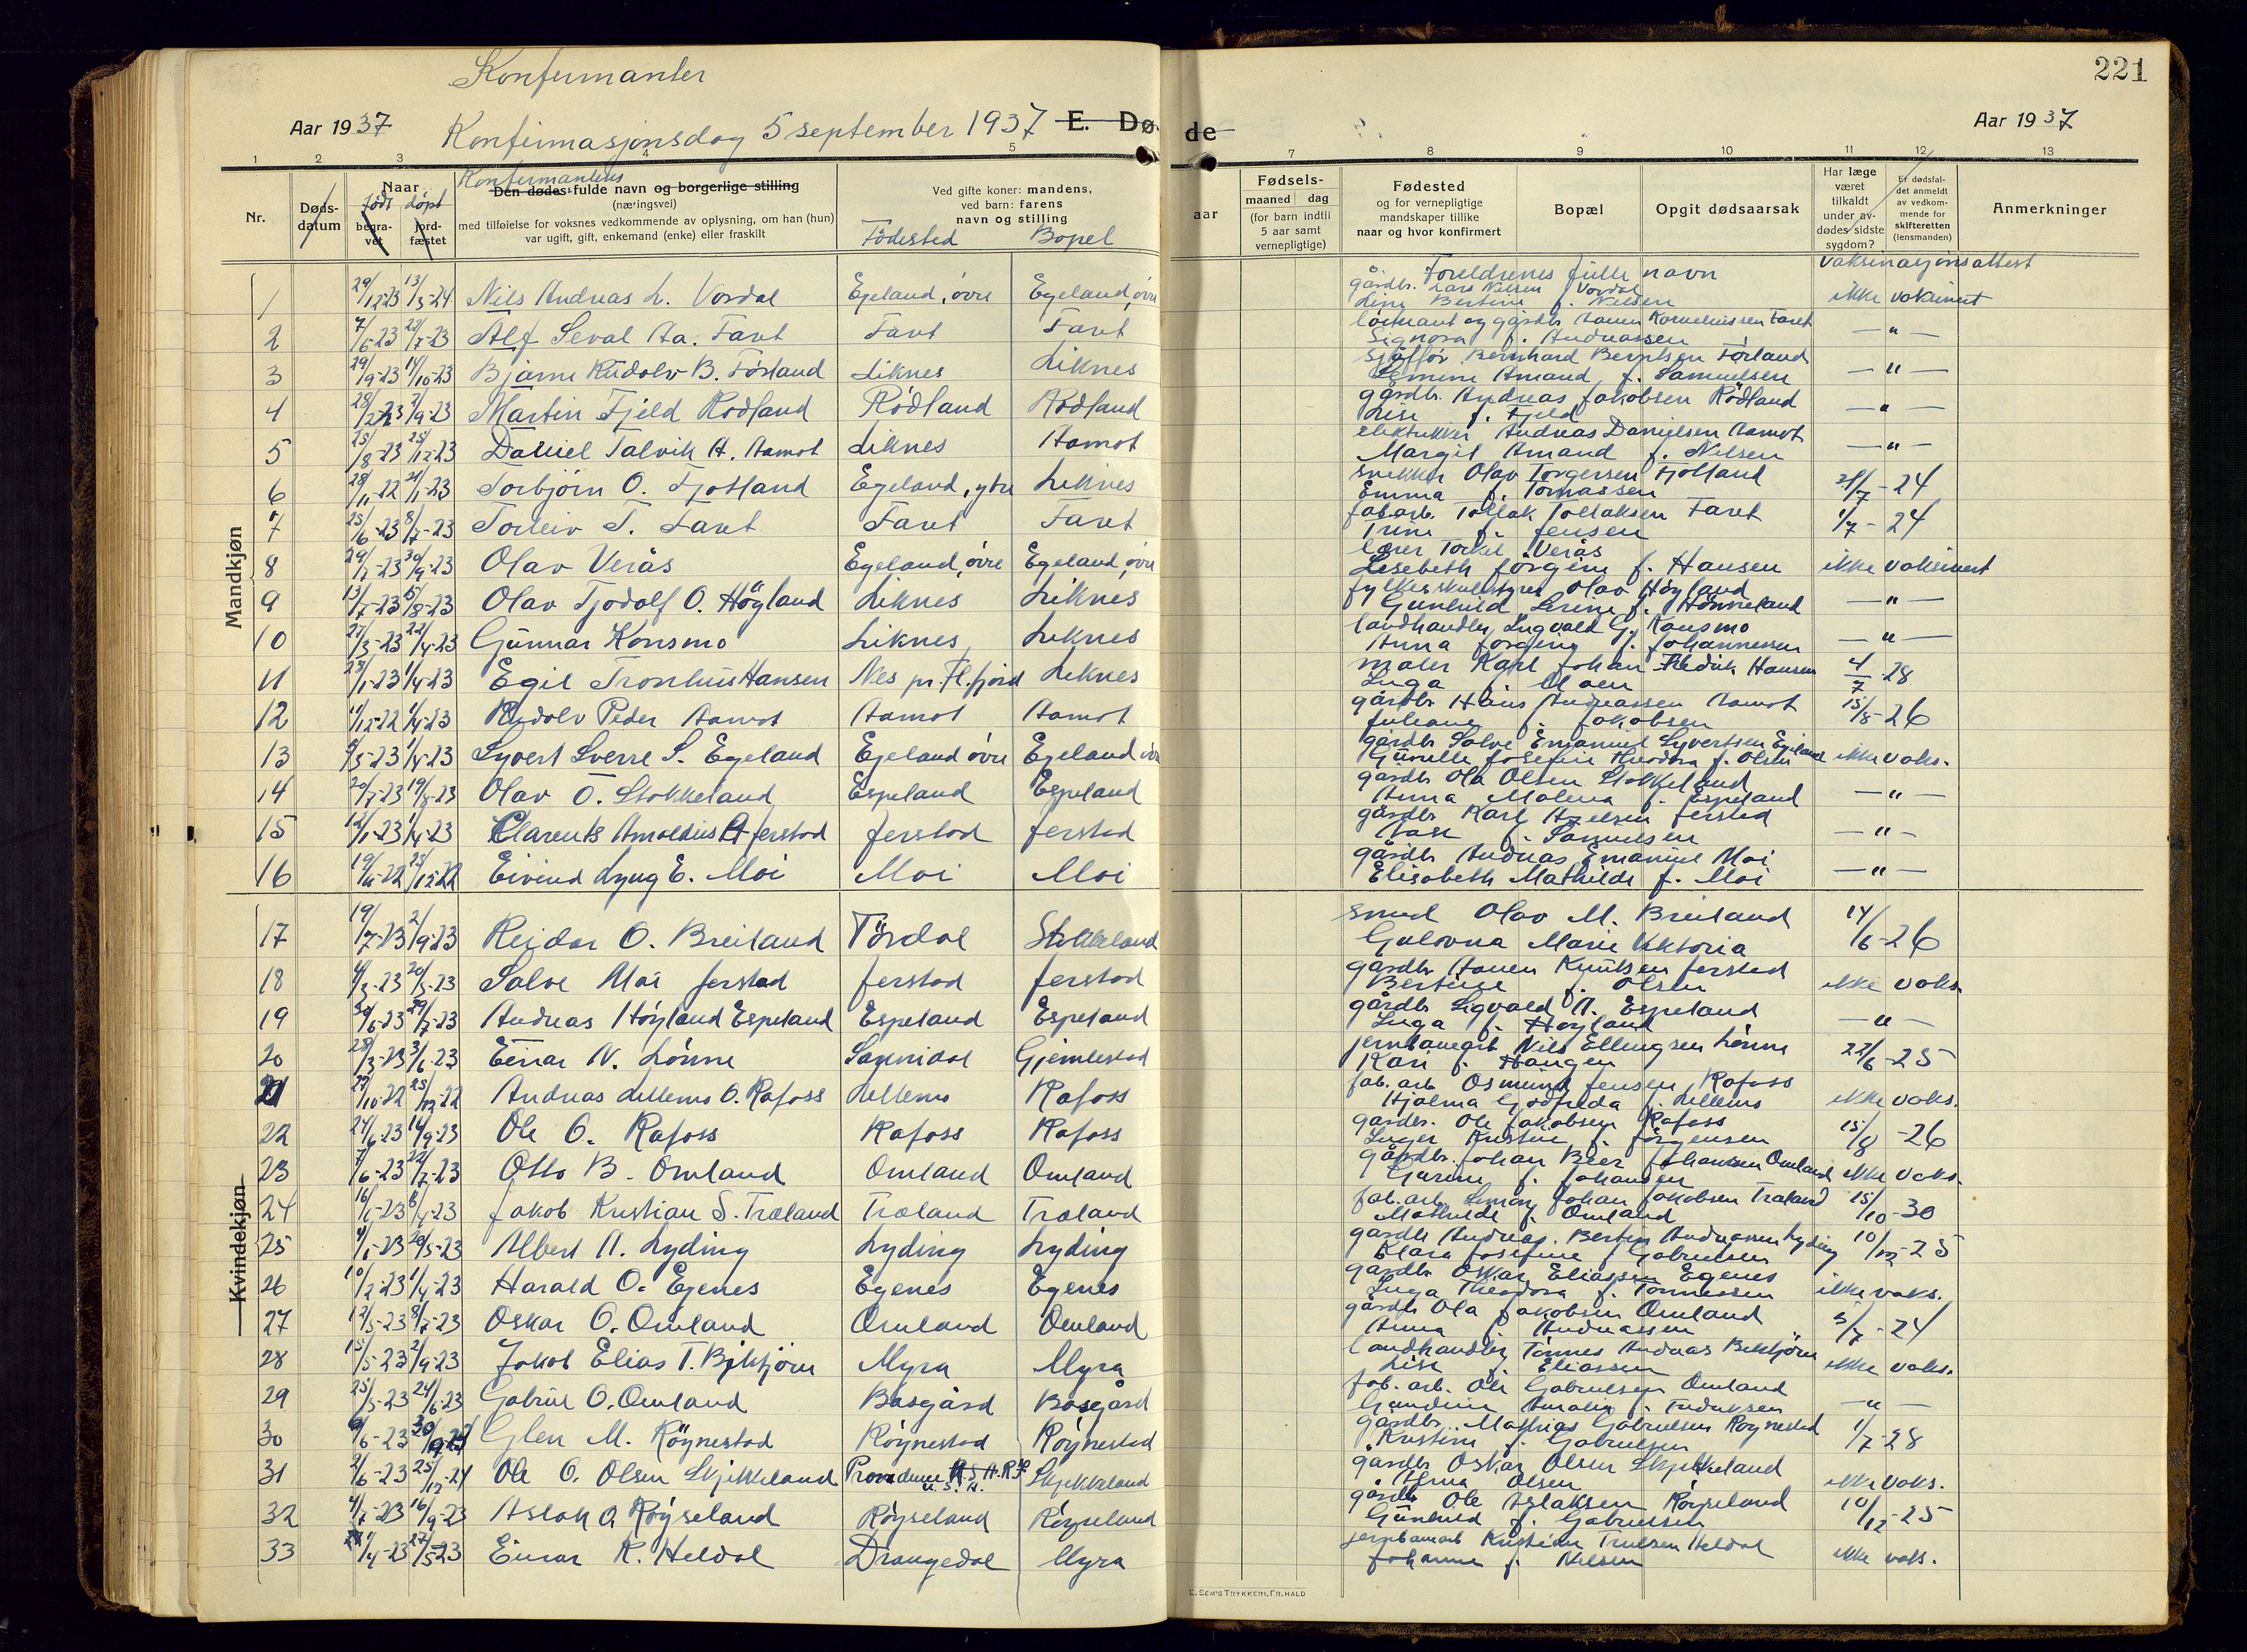 Konfirmanter
221
Aar 1937 Konfirmasjonsdag 5 september 1937 E. Dø de Aar 1937
1 2 3 4 5 7 8 9 10 11 12 13
Nr.
Døds-
datum
Naar
født døpt
begra-
vet
jord-
fæstet
Konfirmantens
Den dødes fulde navn og borgerlige stilling
(næringsvei)
med tilføielse for voksnes vedkommende av oplysning, om han (hun)
var ugift, gift, enkemand (enke) eller fraskilt
Ved gifte koner: mandens,
ved barn: farens
navn og stilling
Fødested Bopel
aar
Fødsels-
maaned dag
(for barn indtil
5 aar samt
vernepligtige)
Fødested
og for vernepligtige
mandskaper tillike
naar og hvor konfirmert
Bopæl
Opgit dødsaarsak
Har læge
været
tilkaldt
under av-
dødes sidste
sygdom?
Er dødsfal-
det anmeldt
av vedkom-
mende for
skifteretten
(lensmanden)
Anmerkninger
Foreldrenes fulle navn
vaksinasjonsattest
Mandkjøn
1 29/12-23 13/3-24 Nils Andreas L. Vordal Egeland, øvre Egeland, øvre gårdbr. Lars Nilsen Vordal ikke vaksinert
Line Bertine f. Nilsen
2 7/6-23 22/7-23 Alf Seval Aa. Faret Faret Faret løitnant og gårdbr. Aanen Korneliussen Faret — " —
Signora f. Andreassen
3 29/9-23 14/10-23 Bjarne Rudolv B. Førland Liknes Liknes sjåfør Bernhard Berntsen Førland — " —
Amand f. Samuelsen
4 Martin Fjeld Rødland Rødland Rødland gårdbr. Andreas Jakobsen Rødland — " —
Lise f. Fjeld
5 25/8-23 25/12-23 Daniel Talvik A. Aamot Liknes Aamot elektriker Andreas Danielsen Aamot — " —
Margit Amand f. Nilsen
6 28/11-22 21/1-23 Torbjørn O. Fjotland Egeland, ytre Liknes snekker Olav Torgersen Fjotland 21/7-24
Emma f. Tomassen
7 25/6-23 8/7-23 Torleiv T. Faret Faret Faret fab.arb. Tollak Tollaksen Faret 1/7-24
Trine f. Jensen
8 29/7-23 30/9-23 Olav Verås Egeland, øvre Egeland, øvre lærer Torkel Verås ikke vaksinert
Lisebeth Jørgine f. Hansen
9 13/7-23 5/8-23 Olav Tjodolf O. Høgland Liknes Liknes fylkesskulestyrer Olav Høgland — " —
Gunhild Serine f. Hønneland
10 27/3-23 22/4-23 Gunnar Konsmo Liknes Liknes landhandler Ingvald G. Konsmo — " —
Anna Jørgine f. Johannessen
11 23/1-23 1/4-23 Egil Tronhus Hansen Nes pr. Fl.fjord Liknes maler Karl Johan Fredrik Hansen 4/7-28
Inga f. Moen
12 11/12-22 1/4-23 Rudolv Peder Aamot Aamot Aamot gårdbr. Hans Andreassen Aamot 15/8-26
Juliane f. Jakobsen
13 1/4-23 Syvert Sverre S. Egeland Egeland øvre Egeland øvre gårdbr. Salve Emanuel Syvertsen Egeland ikke vaks.
Gunelle Josefine Theodora f. Olsen
14 20/7-23 19/8-23 Olav O. Stokkeland Espeland Espeland gårdbr. Ola Olsen Stokkeland — " —
Anna Malena f. Espeland
15 12/1-23 1/4-23 Clarents Arnoldus Jerstad Jerstad Jerstad gårdbr. Karl Jerstad — " —
Aase f. Samuelsen
16 19/11-22 25/12-22 Eivind Lyng E. Moi Moi Moi gårdbr. Andreas Emanuel Moi — " —
Elisabeth Mathilde f. Moi
17 19/7-23 2/9-23 Reidar O. Breiland Tørdal Stokkeland smed Olav M. Breiland 14/6-26
Gulovna Marie Viktoria
18 4/3-23 20/5-23 Salve Moi Jerstad Jerstad Jerstad gårdbr. Aanen Knutsen Jerstad ikke vaks.
Bertine f. Olsen
19 30/6-23 29/7-23 Andreas Høyland Espeland Espeland Espeland gårdbr. Sigvald A. Espeland — " —
Inga f. Høyland
20 28/3-23 3/6-23 Einar N. Lønne Sannidal Gjemlestad jernbanearb. Nils Ellingsen Lønne 22/6-25
Kari f. Haugen
21 29/10-22 25/12-22 Andreas Lillemo O. Rafoss Lillemo Rafoss fab. arb. Osmund Jensen Rafoss ikke vaks.
Hjalma Godfreda f. Lillemo
22 24/6-23 16/9-23 Ole O. Rafoss Rafoss Rafoss gårdbr. Ole Jakobsen Rafoss 15/8-26
Inger Kristine f. Jørgensen
Kvindekjøn
23 7/6-23 22/7-23 Otto B. Omland Omland Omland gårdbr. Johan Beer Johansen Omland ikke vaks.
f. Johansen
24 Jakob Kristian S. Træland Træland Træland fab. arb. Simon Johan Jakobsen Træland 15/10-30
Mathilde f. Omland
25 20/5-23 Albert A. Lyding Lyding Lyding gårdbr. Andreas Bertin Andreassen Lyding 10/12-25
Klara Josefine f. Gabrielsen
26 10/2-23 1/4-23 Harald O. Egenes Egenes Egenes gårdbr. Oskar Eliassen Egenes ikke vaks.
Inga Theodora f. Tønnessen
27 12/5-23 8/7-23 Oskar O. Omland Omland Omland gårdbr. Ola Jakobsen Omland 5/7-24
Anna f. Andreassen
28 15/5-23 2/9-23 Jakob Elias T. Birkjørn Myra Myra landhandler Tønnes Andreas ikke vaks.
Lise f. Eliassen
29 25/5-23 24/6-23 Gabriel O. Omland Båsgård Båsgård fab. arb. Ole Gabrielsen Omland — " —
Amalie f. Fredriksen
30 Glen M. Røynestad Røynestad Røynestad gårdbr. Mathias Gabrielsen Røynestad 1/7-28
Kristine f. Gabrielsen
31 2/6-23 25/12-24 Ole O. Olsen Skjekkeland Providence U.S.A. Skjekkeland gårdbr. Oskar Olsen Skjekkeland ikke vaks.
Alma Olsen
32 4/7-23 16/9-23 Aslak O. Røyseland Røyseland Røyseland gårdbr. Ole Aslaksen Røyseland 10/12-25
Gunhild f. Gabrielsen
33 27/5-23 Einar K. Heldal Drangedal Myra jernbanearb. Kristian Truelsen Heldal ikke vaks.
Johanne f. Nilsen
E. SEM'S TRYKKERI, FR.HALD